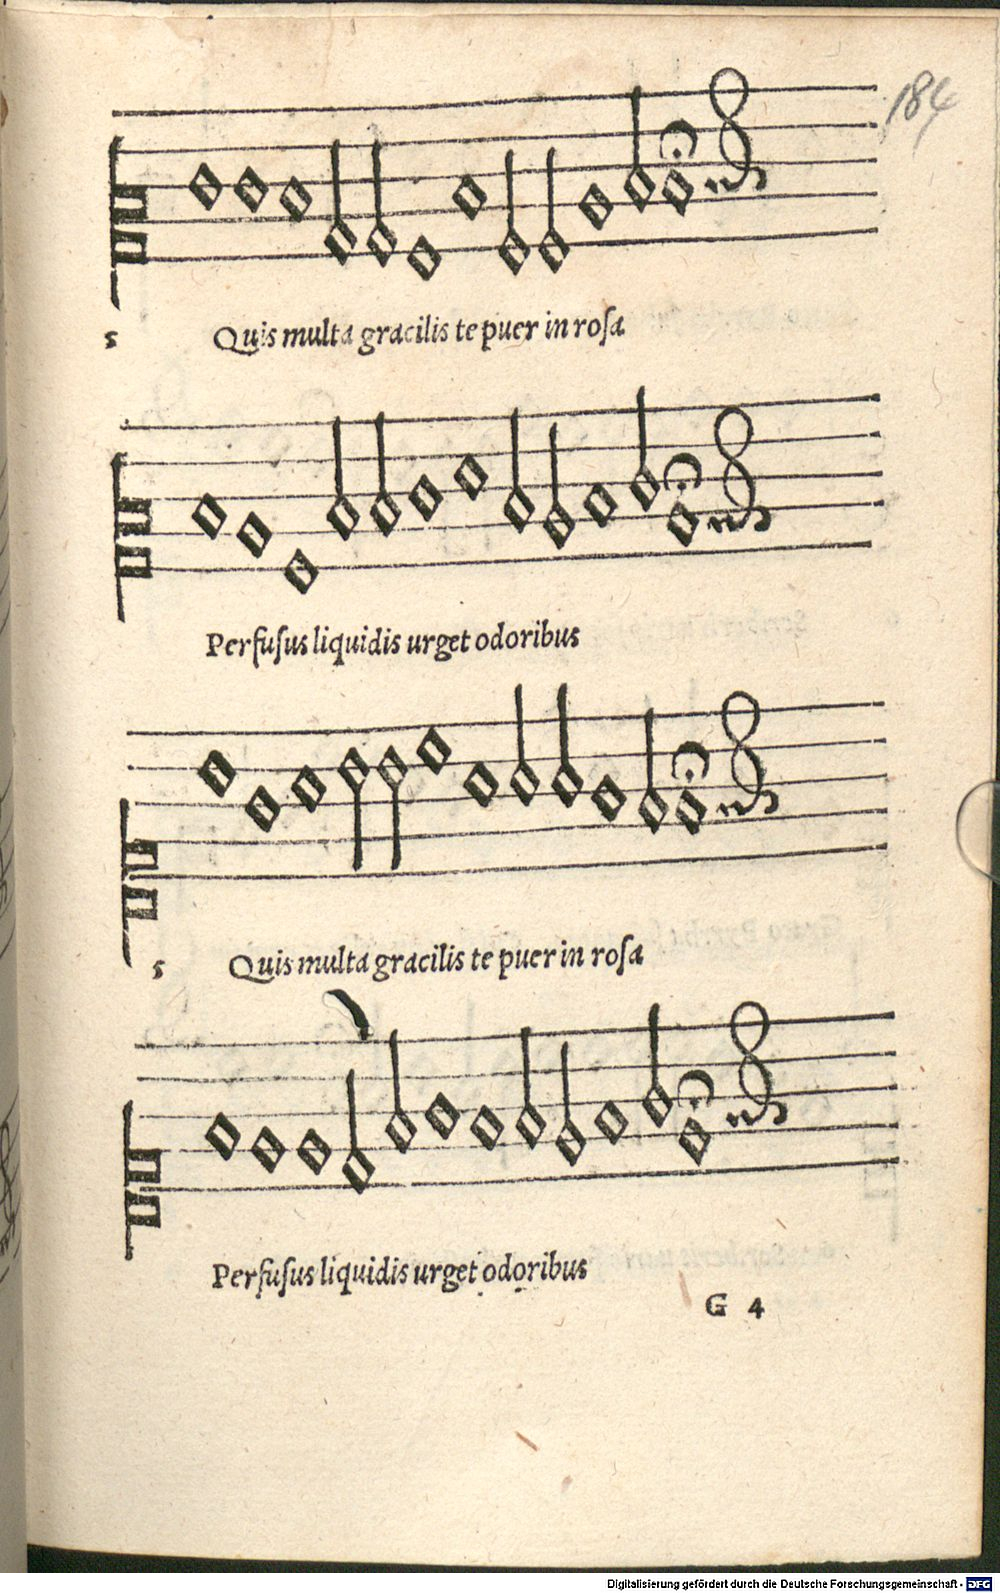 184
5 Quis multa gracilis te puer in roſa
Perfuſus liquidis urget odoribus
5 Quis multa gracilis te puer in roſa
Perfuſus liquidis urget odoribus
G 4
Digitalisierung gefördert durch die Deutsche Forschungsgemeinschaft - DFG